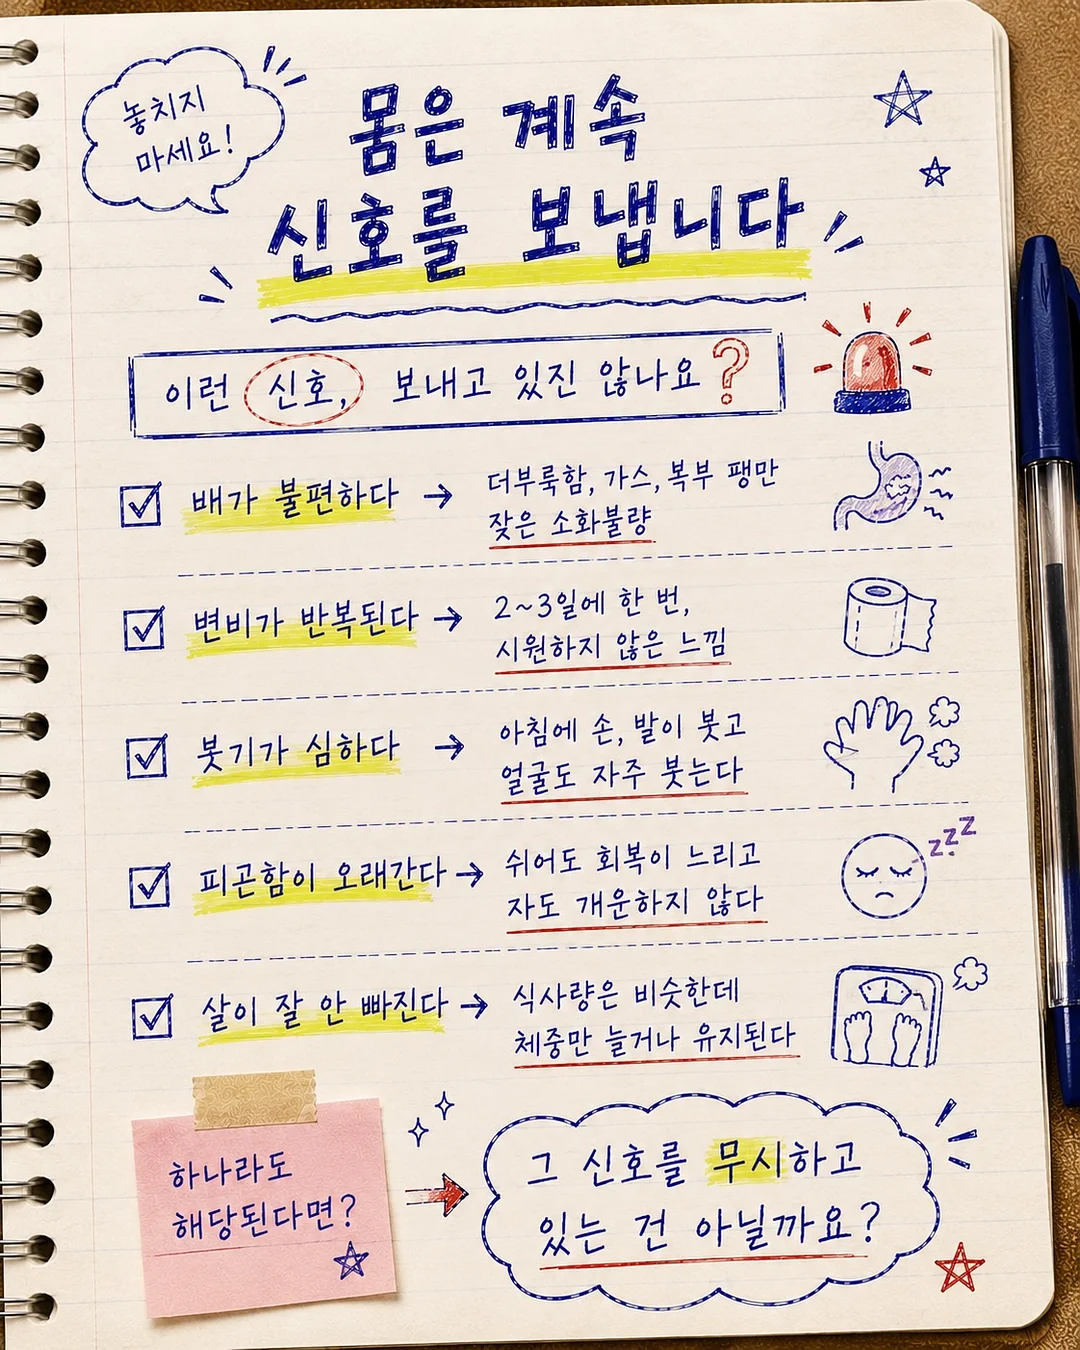 놓치지
마세요!
몸은 계속
신호를 보냅니다
이런 신호, 보내고 있진 않나요?
배가 불편하다 → 더부룩함, 가스, 복부 팽만
잦은 소화불량
변비가 반복된다 → 2~3일에 한 번,
시원하지 않은 느낌
붓기가 심하다 → 아침에 손, 발이 붓고
얼굴도 자주 붓는다
피곤함이 오래간다 → 쉬어도 회복이 느리고
자도 개운하지 않다
zzz
살이 잘 안 빠진다 → 식사량은 비슷한데
체중만 늘거나 유지된다
하나라도
해당된다면?
그 신호를 무시하고
있는 건 아닐까요?